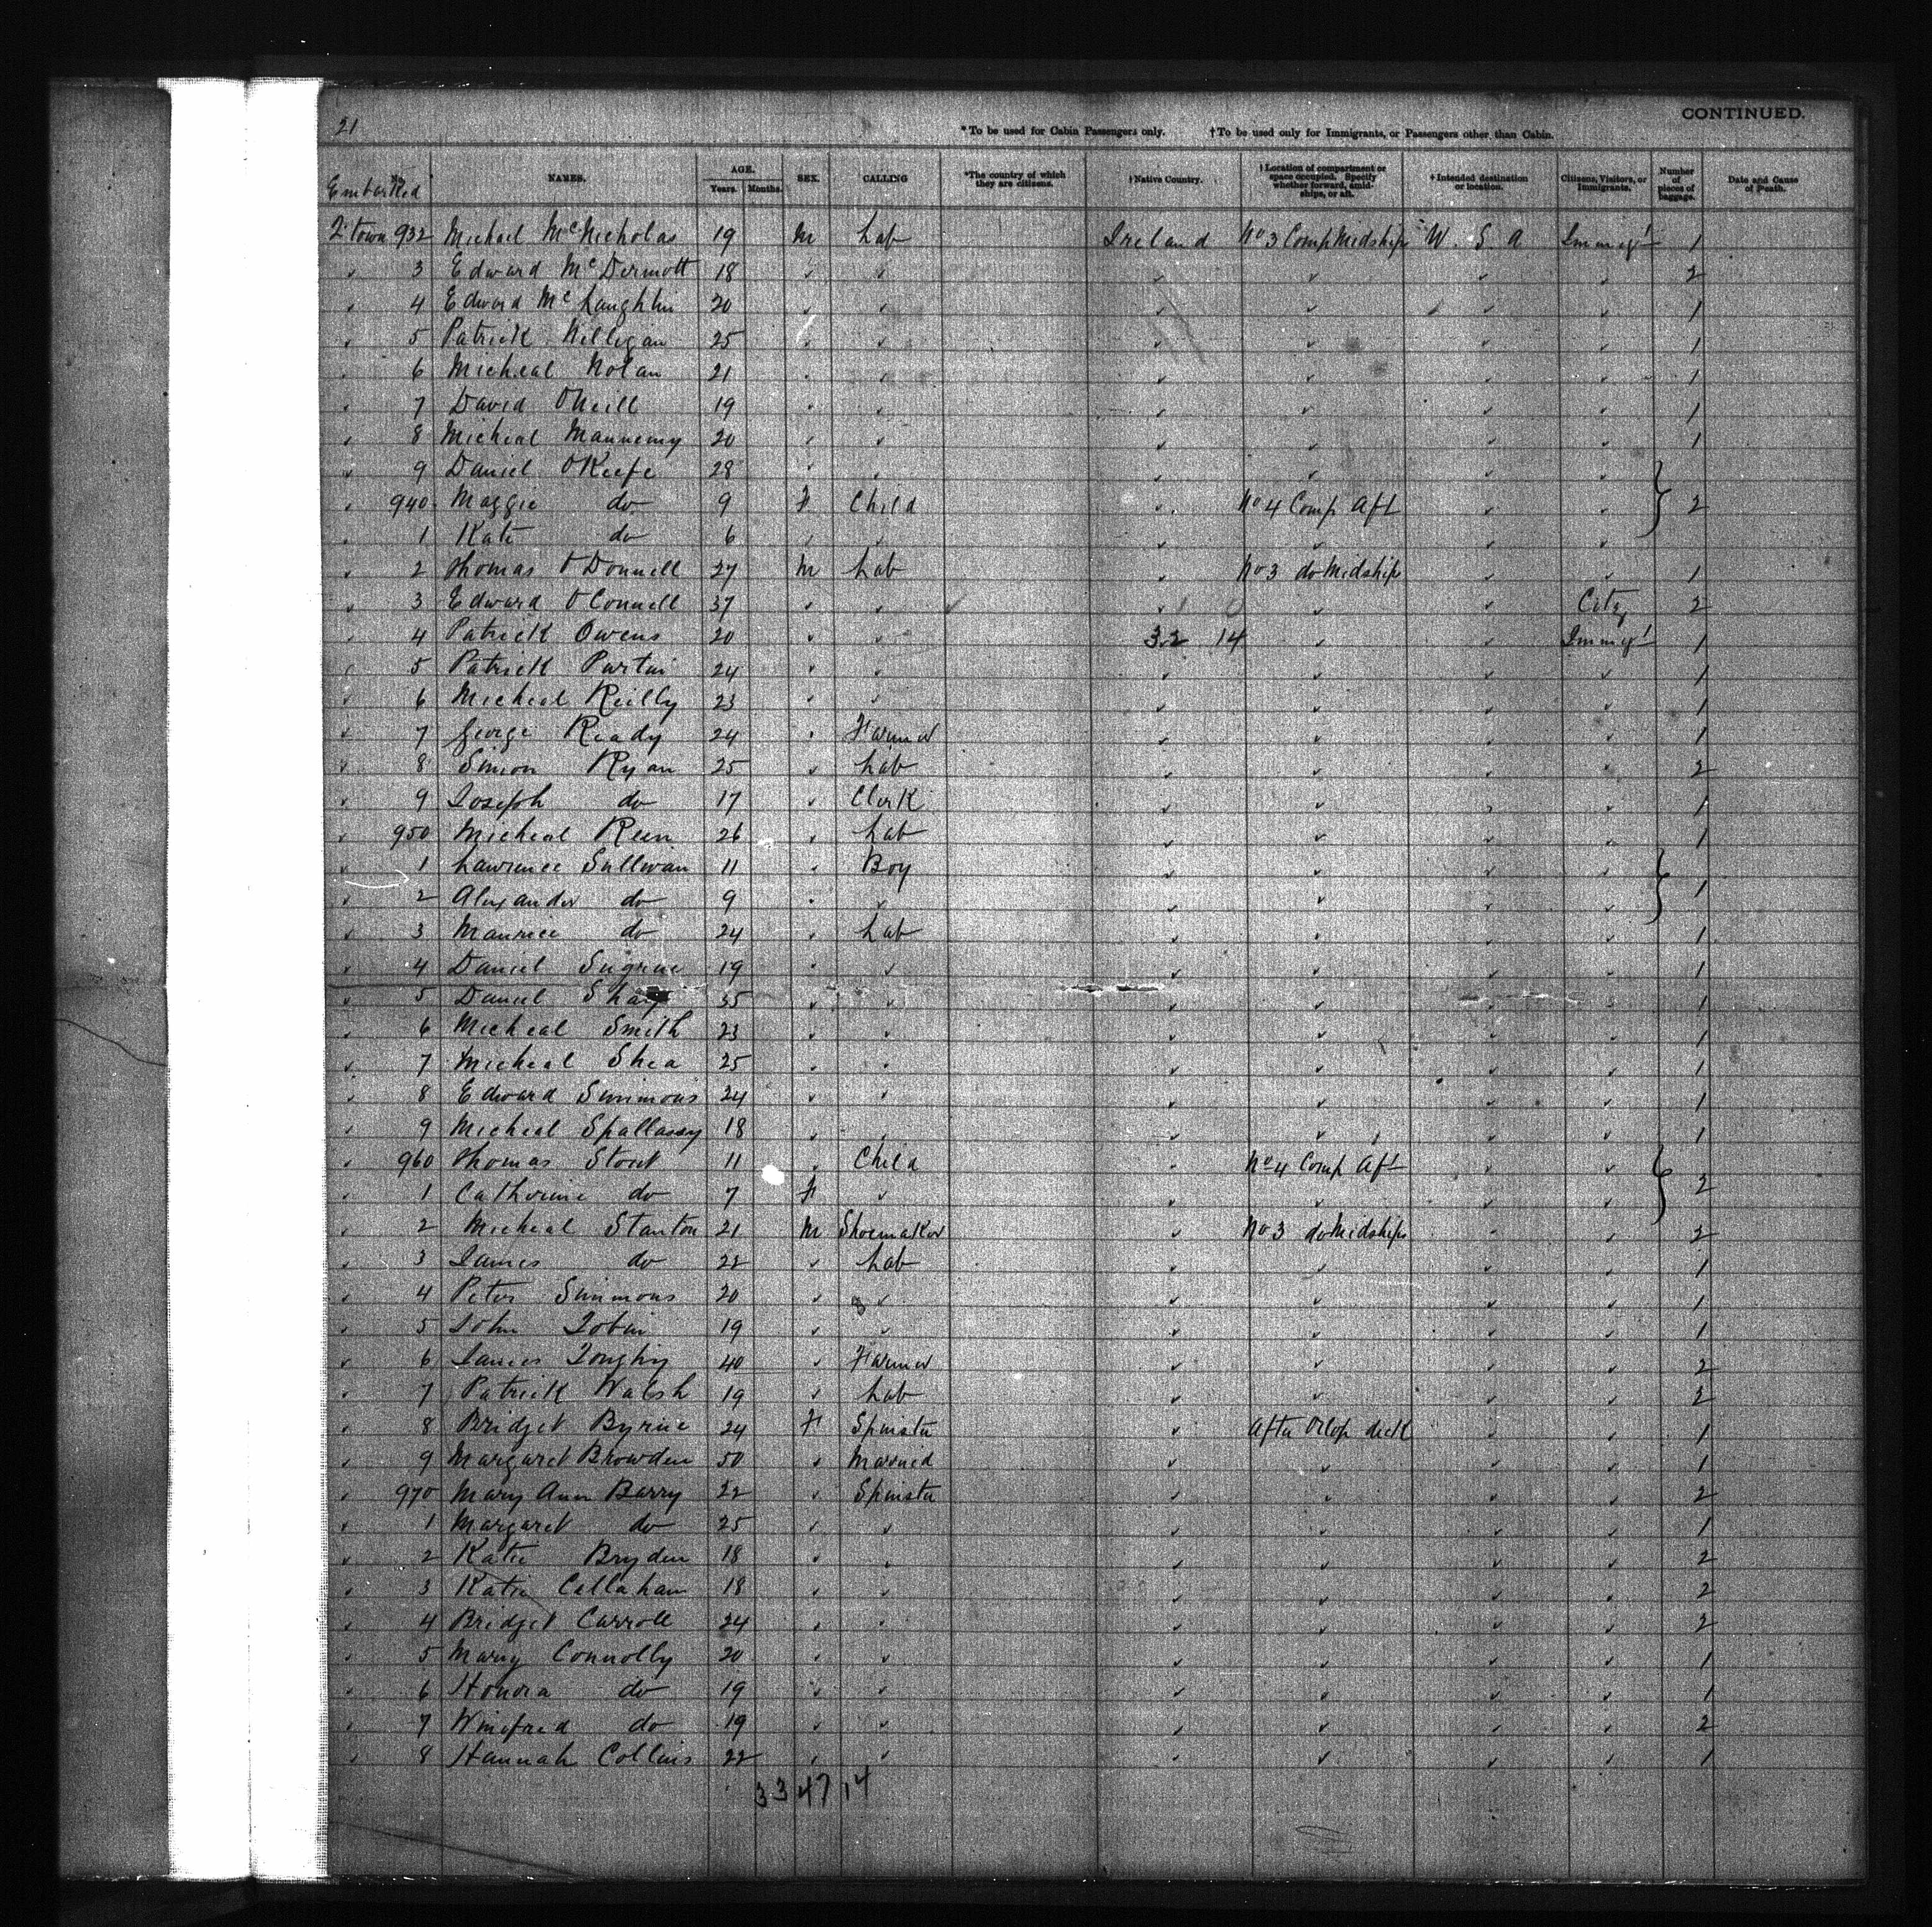 CONTINUED.
21
*To be used for Cabin Passengers only. †To be used only for Immigrants, or Passengers other than Cabin.
Embarked No NAMES. AGE. Years. Months. SEX. CALLING *The country of which they are citizens. †Native Country. †Location of compartment or space occupied. Specify whether forward, amidships, or aft. †Intended destination or location. Citizens, Visitors, or Immigrants. Number of pieces of baggage. Date and Cause of Death.
Q. town 932 Michael McNicholas 19 M Lab Ireland No 3 Comp Midship U. S A Immigt 1
✓ 3 Edward McDermott 18 ✓ ✓ ✓ ✓ ✓ ✓ 2
✓ 4 Edward McLaughlin 20 ✓ ✓ ✓ ✓ ✓ ✓ 1
✓ 5 Patrick 25 ✓ ✓ ✓ ✓ ✓ ✓ 1
✓ 6 Micheal Nolan 21 ✓ ✓ ✓ ✓ ✓ ✓ 1
✓ 7 David O'Neill 19 ✓ ✓ ✓ ✓ ✓ ✓ 1
✓ 8 Micheal 20 ✓ ✓ ✓ ✓ ✓ ✓ 1
✓ 9 Daniel O'Keefe 28 ✓ ✓ ✓ ✓ ✓ ✓
✓ 940 Maggie do 9 F Child ✓ No 4 Comp Aft ✓ ✓ } 2
✓ 1 Kate do 6 ✓ ✓ ✓ ✓ ✓ ✓
✓ 2 Thomas O'Donnell 27 M Lab ✓ No 3 do Midship ✓ ✓ 1
✓ 3 Edward O'Connell 37 ✓ ✓ ✓ ✓ ✓ ✓ City 2
✓ 4 Patrick Owens 20 ✓ ✓ 32 14 ✓ ✓ Immigt 1
✓ 5 Patrick 24 ✓ ✓ ✓ ✓ ✓ ✓ 1
✓ 6 Micheal Reilly 23 ✓ ✓ ✓ ✓ ✓ ✓ 1
✓ 7 George Ready 24 ✓ Farmer ✓ ✓ ✓ ✓ 1
✓ 8 Simon Ryan 25 ✓ Lab ✓ ✓ ✓ ✓ 2
✓ 9 Joseph do 17 ✓ Clerk ✓ ✓ ✓ ✓ 1
✓ 950 Micheal Reen 26 ✓ Lab ✓ ✓ ✓ ✓ 1
✓ 1 Lawrence Sullivan 11 ✓ Boy ✓ ✓ ✓ ✓
✓ 2 Alexander do 9 ✓ ✓ ✓ ✓ ✓ ✓ } 1
✓ 3 Maurice do 24 ✓ Lab ✓ ✓ ✓ ✓ 1
✓ 4 Daniel Sugrue 19 ✓ ✓ ✓ ✓ ✓ ✓ 1
✓ 5 Daniel 35 ✓ ✓ ✓ ✓ ✓ ✓ 1
✓ 6 Micheal Smith 23 ✓ ✓ ✓ ✓ ✓ ✓ 1
✓ 7 Micheal Shea 25 ✓ ✓ ✓ ✓ ✓ ✓ 1
✓ 8 Edward Simmons 24 ✓ ✓ ✓ ✓ ✓ ✓ 1
✓ 9 Micheal 18 ✓ ✓ ✓ ✓ ✓ ✓ 1
✓ 960 Thomas Stout 11 ✓ Child ✓ No 4 Comp Aft ✓ ✓
✓ 1 Catherine do 7 F ✓ ✓ ✓ ✓ ✓ } 2
✓ 2 Micheal Stanton 21 M Shoemaker ✓ No 3 do Midships ✓ ✓ 2
✓ 3 James do 22 ✓ Lab ✓ ✓ ✓ ✓ 1
✓ 4 Peter Simmons 20 ✓ ✓ ✓ ✓ ✓ ✓ 1
✓ 5 John Tobin 19 ✓ ✓ ✓ ✓ ✓ ✓ 1
✓ 6 James 40 ✓ Farmer ✓ ✓ ✓ ✓ 2
✓ 7 Patrick Walsh 19 ✓ Lab ✓ ✓ ✓ ✓ 2
✓ 8 Bridget Byrne 24 F Spinster ✓ After Orlop deck ✓ ✓ 1
✓ 9 Margaret Browden 50 ✓ Married ✓ ✓ ✓ ✓ 1
✓ 970 Mary Ann Barry 22 ✓ Spinster ✓ ✓ ✓ ✓ 2
✓ 1 Margaret do 25 ✓ ✓ ✓ ✓ ✓ ✓ 1
✓ 2 Katie Bryden 18 ✓ ✓ ✓ ✓ ✓ ✓ 2
✓ 3 Katie Callahan 18 ✓ ✓ ✓ ✓ ✓ ✓ 2
✓ 4 Bridget Carroll 24 ✓ ✓ ✓ ✓ ✓ ✓ 2
✓ 5 Mary Connolly 20 ✓ ✓ ✓ ✓ ✓ ✓ 1
✓ 6 Honora do 19 ✓ ✓ ✓ ✓ ✓ ✓ 1
✓ 7 Winefred do 19 ✓ ✓ ✓ ✓ ✓ ✓ 2
✓ 8 Hannah Collins 22 ✓ ✓ ✓ ✓ ✓ ✓ 1
33 47 14